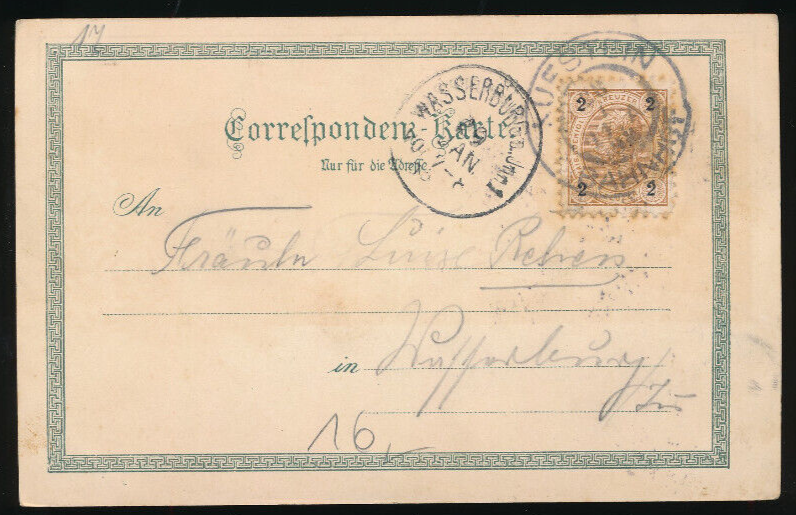 17
KUFSTEIN
BAHNHOF
2 KREUZER 2
2 2
WASSERBURG a. Inn 1.
29
JAN.
Correspondenz-Karte
Nur für die Adresse
An
Fräuln Luise
in Wasserburg
16